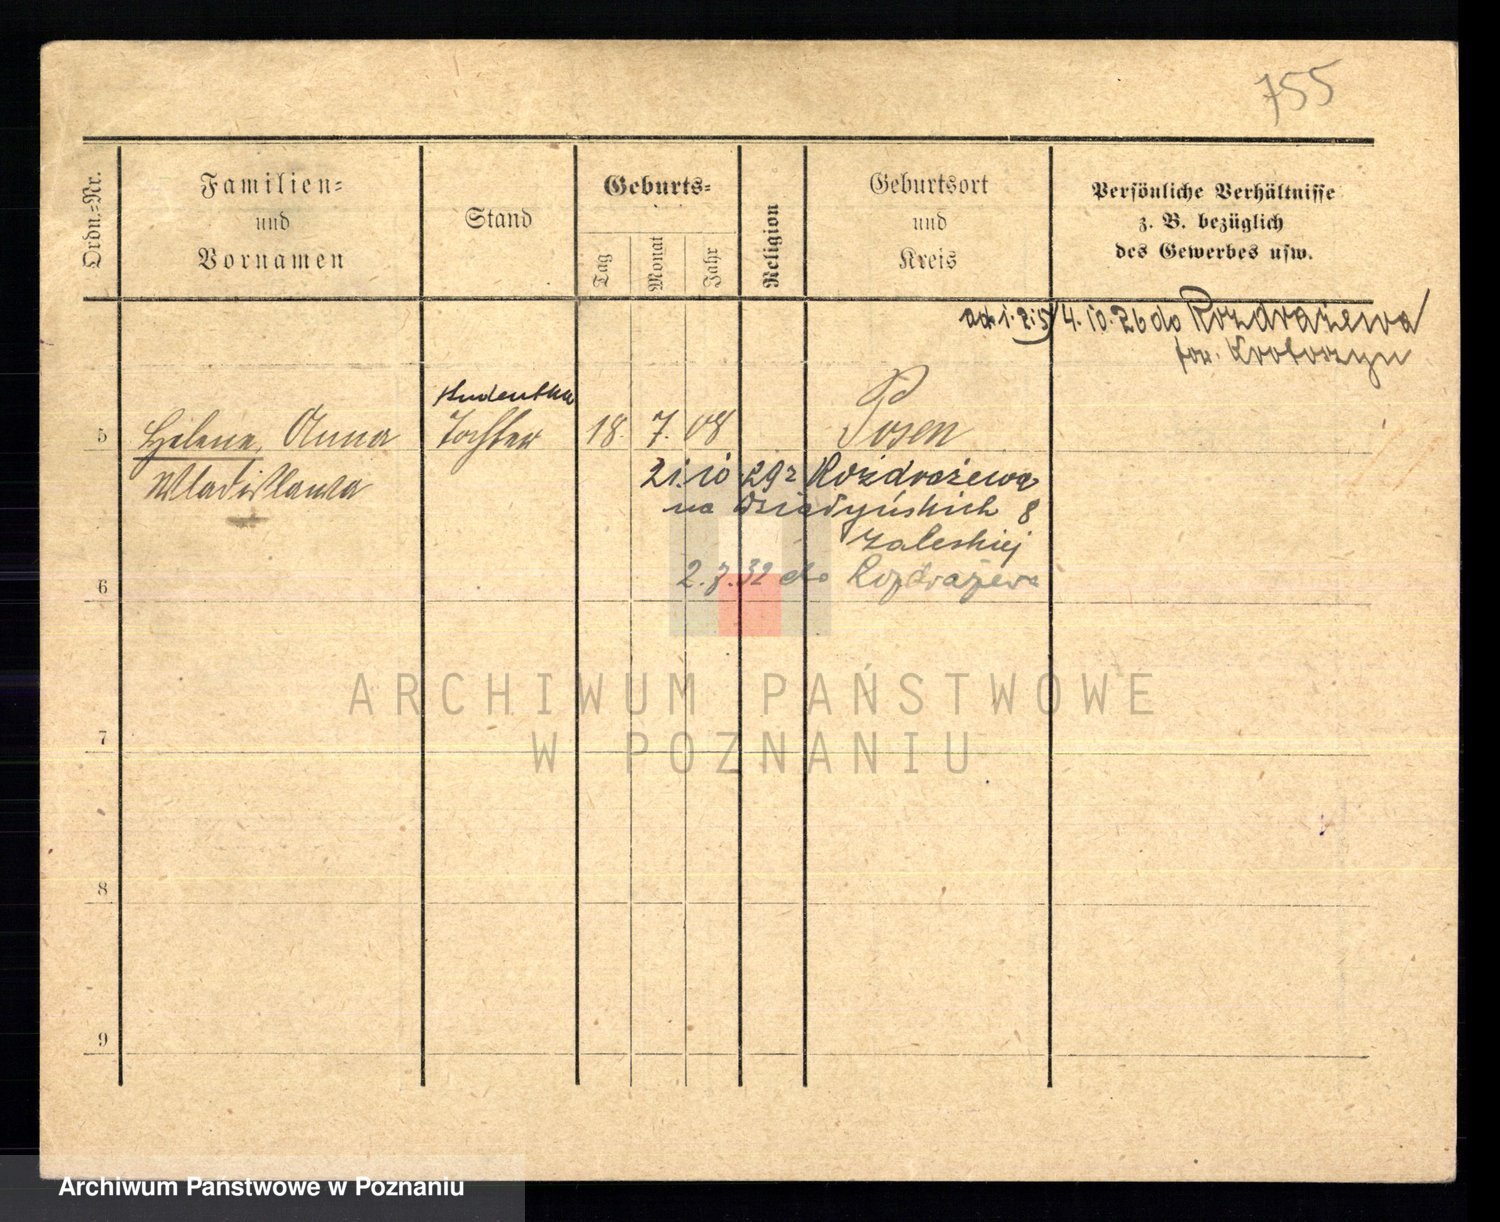 755
Ordn.-Nr.
Familien-
und
Vornamen
Stand
Geburts-
Tag
Monat
Jahr
Religion
Geburtsort
und
Kreis
Persönliche Verhältnisse
z. B. bezüglich
des Gewerbes usw.
4.10.26 do Rozdrażewa
pow. Krotoszyn
studentka
5 Helene, Anna Tochter 18. 7. 08 Posen
Wladislawa
21.10 29 z Rozdrażewa
na Działyńskich 8
Zaleskiej
2.7.32 do Rozdrażewa
6
7
8
9
ARCHIWUM PAŃSTWOWE
W POZNANIU
Archiwum Państwowe w Poznaniu